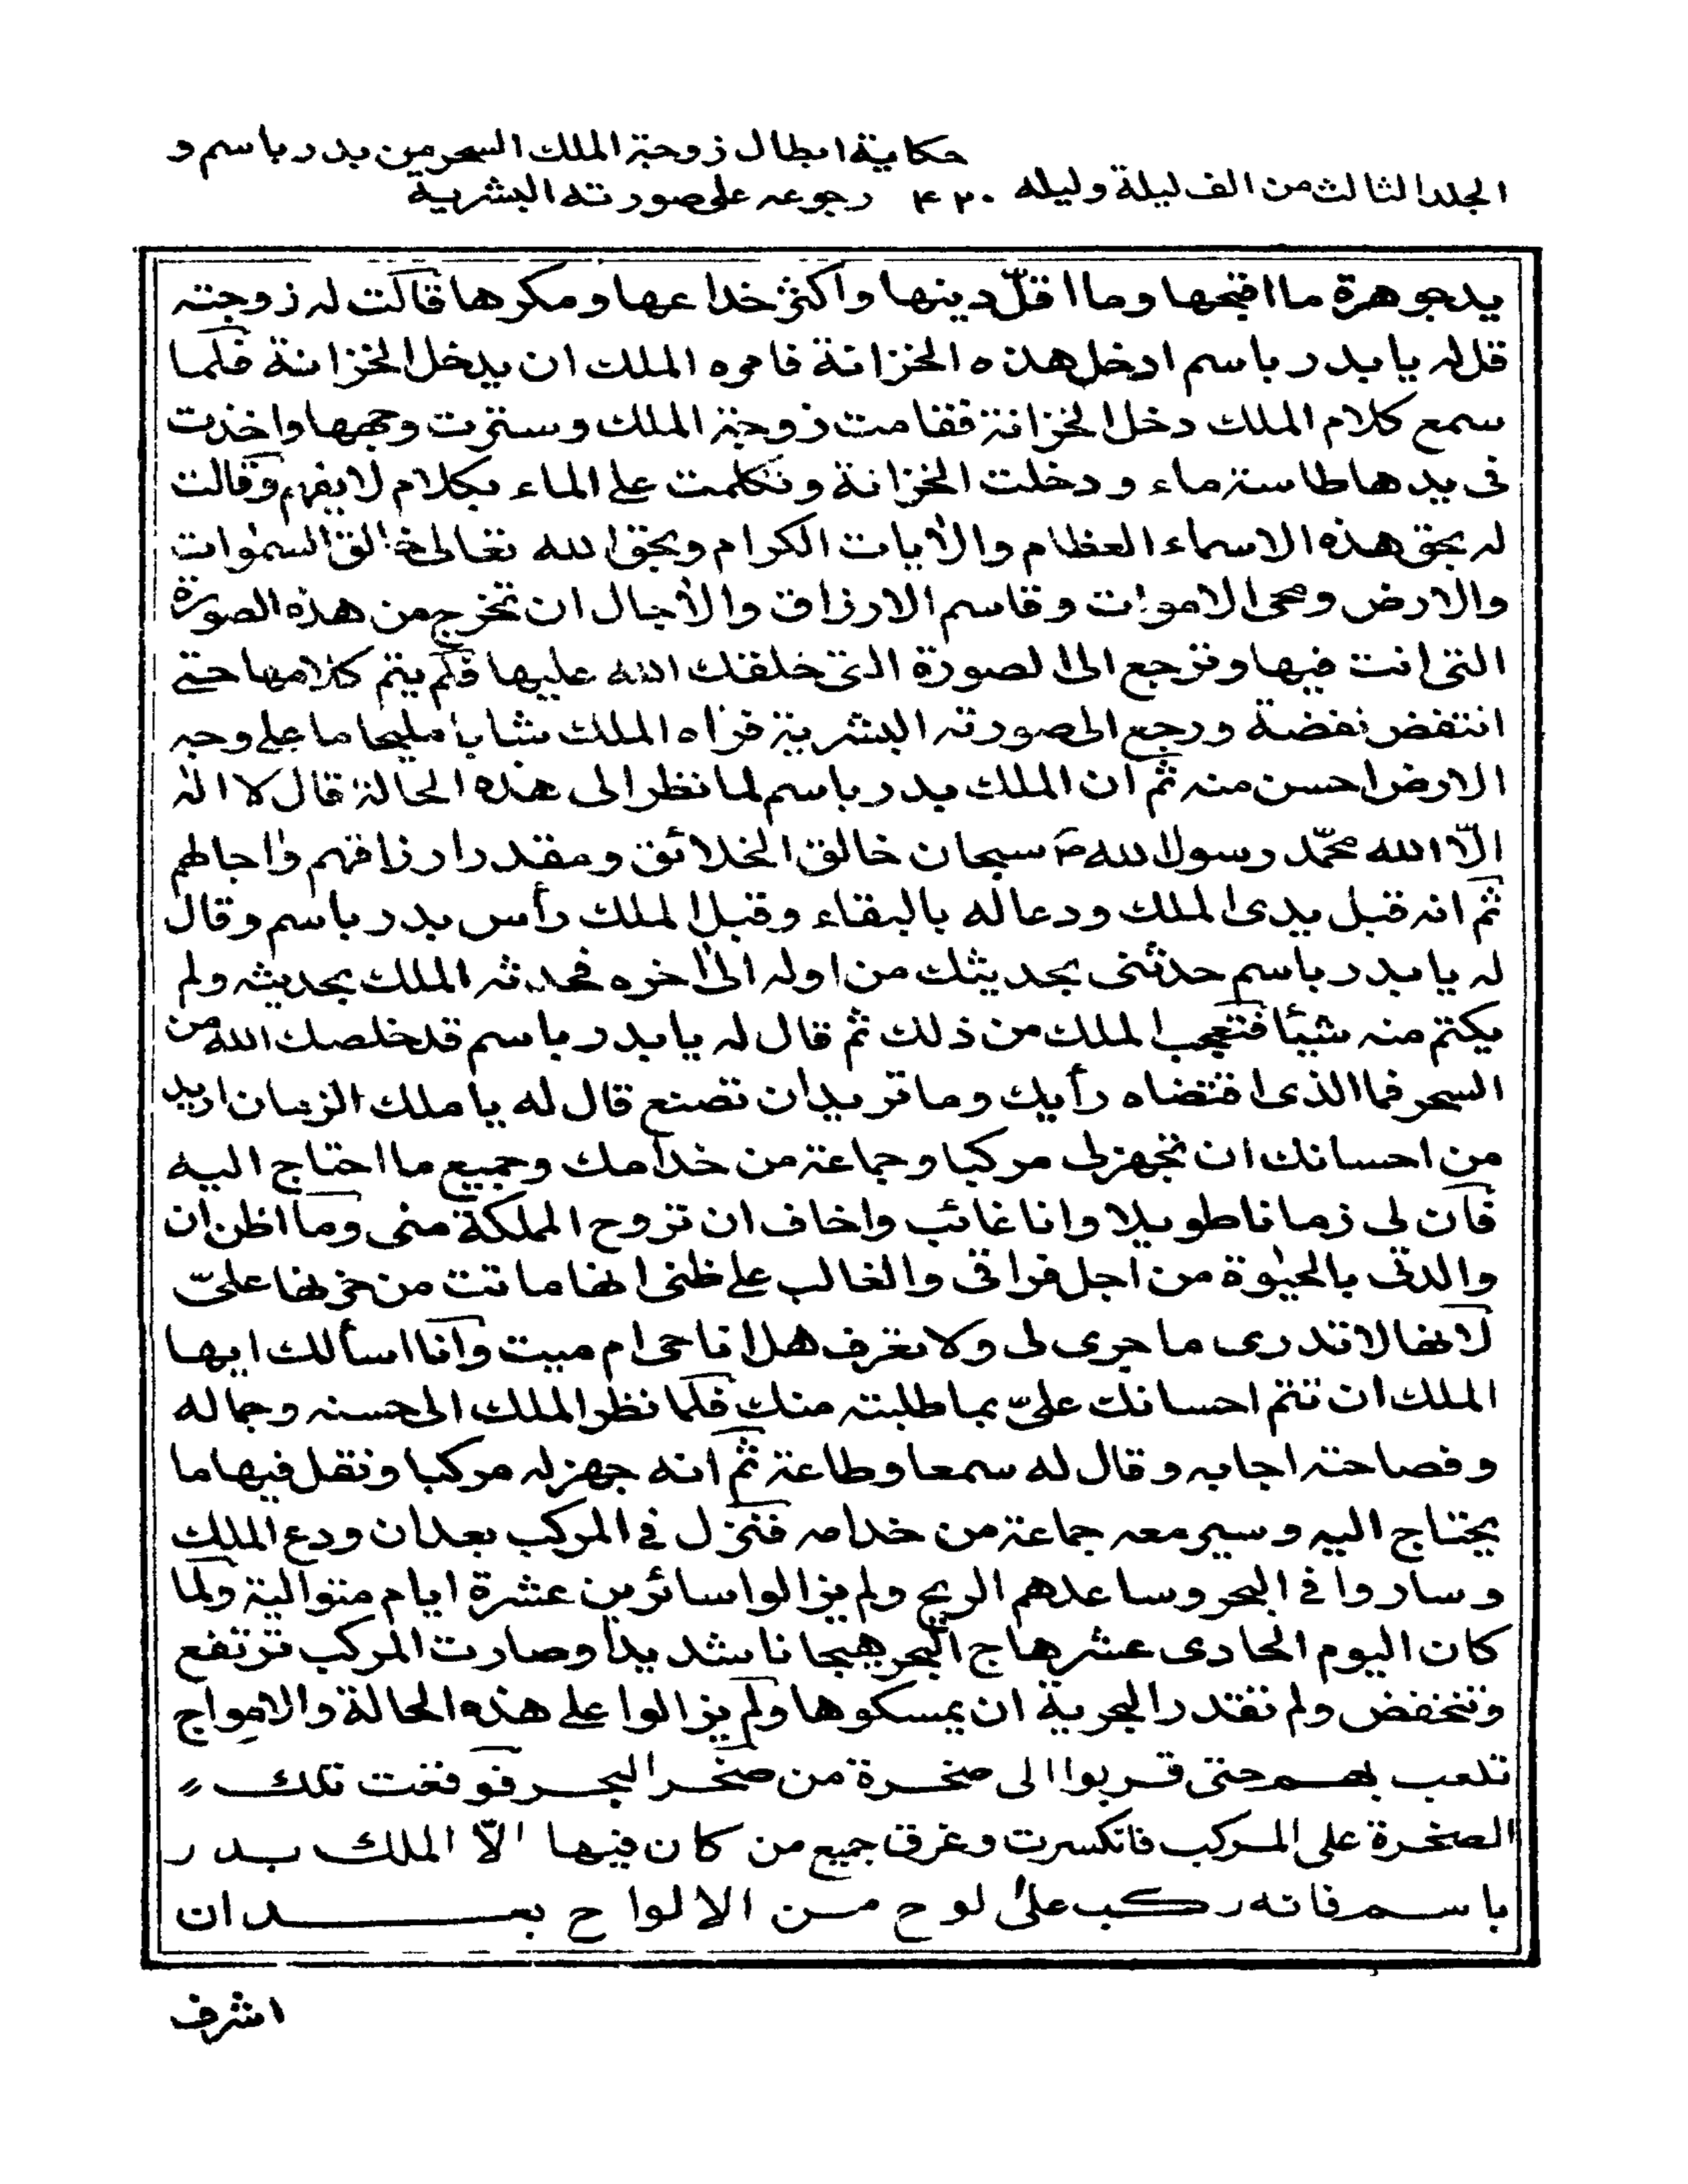 حكاية ابطال زوجة الملك السحر من بدر باسم و
الجلد الثالث من الف ليلة وليله ۴۲۰ رجوعه على صورته البشرية
يد جوهرة ما اقبحها وما اقلّ دينها واكثر خداعها ومكرها قالت له زوجته
قل له يا بدر باسم ادخل هذه الخزانة فامره الملك ان يدخل الخزانة فلما
سمع كلام الملك دخل الخزانة فقامت زوجة الملك وسترت وجهها واخذت
فى يدها طاسة ماء ودخلت الخزانة وتكلمت على الماء بكلام لا يفهم وقالت
له بحق هذه الاسماء العظام والأيات الكرام وبحق الله تعالى خالق السمٰوات
والارض ومحى الاموات وقاسم الارزاق والأجال ان تخرج من هذه الصورة
التى انت فيها وترجع الى الصورة التى خلقك الله عليها فلم يتم كلامها حتى
انتفض نفضة ورجع الى صورته البشرية فرأه الملك شابا مليحا ما على وجه
الارض احسن منه ثم ان الملك بدر باسم لما نظر الى هذه الحالة قال لا اله
الّا الله محمّد رسول الله ص سبحان خالق الخلائق ومقدر ارزاقهم واجالهم
ثم انه قبل يدى الملك ودعا له بالبقاء وقبل الملك رأس بدر باسم وقال
له يا بدر باسم حدثنى بحديثك من اوله الى أخره فحدثه الملك بحديثه ولم
يكتم منه شيئا فتعجب الملك من ذلك ثم قال له يا بدر باسم قد خلصك الله من
السحر فما الذى اقتضاه رأيك وما تريد ان تصنع قال له يا ملك الزمان اريد
من احسانك ان تجهز لى مركبا وجماعة من خدامك وجميع ما احتاج اليه
فان لى زمانا طويلا وانا غائب واخاف ان تروح المملكة منى وما اظن ان
والدتى بالحيٰوة من اجل فراقى والغالب على ظنى انها ماتت من حزنها علىّ
لانها لا تدرى ما جرى لى ولا تعرف هل انا حى ام ميت وانا اسألك ايها
الملك ان تتم احسانك علىّ بما طلبته منك فلما نظر الملك الى حسنه وجماله
وفصاحته اجابه وقال له سمعا وطاعة ثم انه جهز له مركبا ونقل فيها ما
يحتاج اليه وسير معه جماعة من خدامه فنزل فى المركب بعد ان ودع الملك
وساروا فى البحر وساعدهم الريح ولم يزالوا سائرين عشرة ايام متوالية ولما
كان اليوم الحادى عشر هاج البحر هيجانا شديدا وصارت المركب ترتفع
وتنخفض ولم تقدر البحرية ان يمسكوها ولم يزالوا على هذه الحالة والامواج
تلعب بهم حتى قربوا الى صخرة من صخر البحر فوقعت تلك
الصخرة على المركب فانكسرت وغرق جميع من كان فيها الّا الملك بدر
باسم فانه ركب على لوح من الالواح بعد ان
اشرف